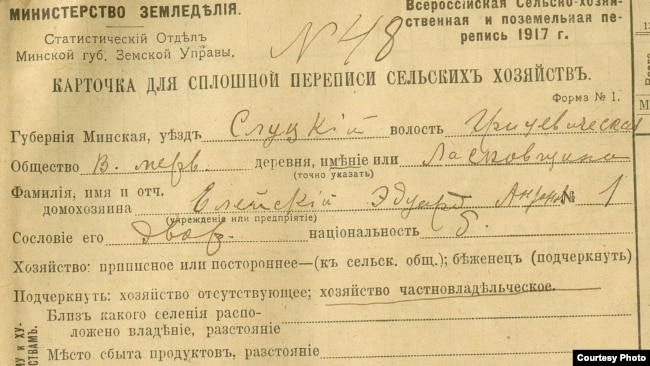 МИНИСТЕРСТВО ЗЕМЛЕДѢЛІЯ.
Всероссійская Сельско-хозяй-
ственная и поземельная пе-
репись 1917 г.
Статистическій Отдѣлъ
Минской губ. Земской Управы.
N 48
КАРТОЧКА ДЛЯ СПЛОШНОЙ ПЕРЕПИСИ СЕЛЬСКИХЪ ХОЗЯЙСТВЪ.
Форма № 1.
Губернія Минская, уѣздъ Слуцкій волость Грицевическая
Общество В. деревня, имѣніе или Ласковщина
(точно указать)
Фамилія, имя и отч. домохозяина Эдуард № 1
(учрежденія или предпріятіе)
Сословіе его двор. національность б.
Хозяйство: приписное или постороннее—(къ сельск. общ.); бѣженец (подчеркнуть)
Подчеркнуть: хозяйство отсутствующее; хозяйство частновладѣльческое.
Близъ какого селенія распо-
ложено владѣніе, разстояніе
Мѣсто сбыта продуктовъ, разстояніе
Courtesy Photo